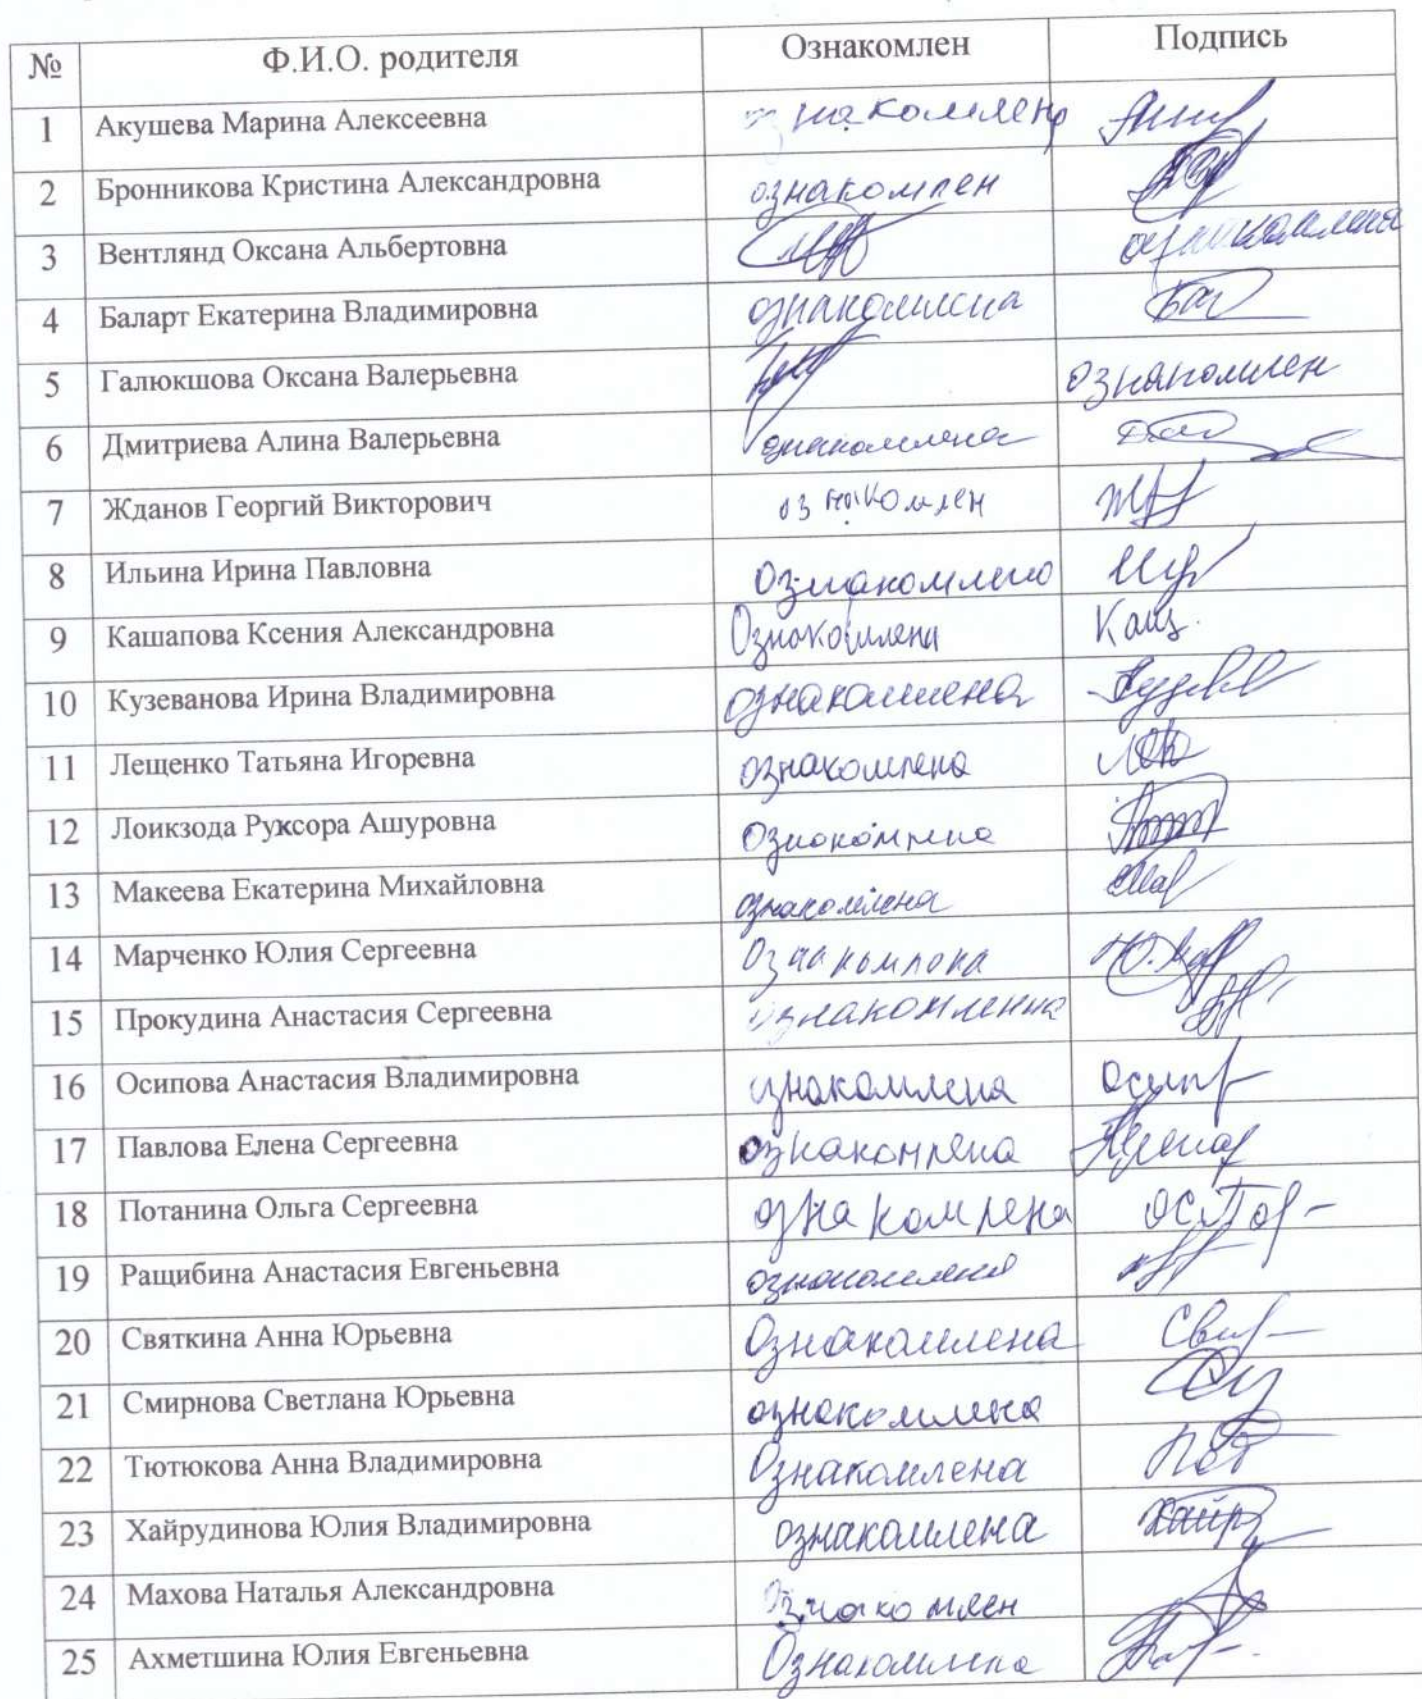 № Ф.И.О. родителя Ознакомлен Подпись
1 Акушева Марина Алексеевна ознакомлена
2 Бронникова Кристина Александровна ознакомлен
3 Вентлянд Оксана Альбертовна ознакомлена
4 Баларт Екатерина Владимировна ознакомлена
5 Галюкшова Оксана Валерьевна ознакомлен
6 Дмитриева Алина Валерьевна ознакомлена
7 Жданов Георгий Викторович ознакомлен
8 Ильина Ирина Павловна
9 Кашапова Ксения Александровна Ознакомлена Каш.
10 Кузеванова Ирина Владимировна ознакомлена
11 Лещенко Татьяна Игоревна ознакомлена
12 Лоикзода Руксора Ашуровна Ознакомлена
13 Макеева Екатерина Михайловна ознакомлена
14 Марченко Юлия Сергеевна
15 Прокудина Анастасия Сергеевна ознакомленна
16 Осипова Анастасия Владимировна ознакомлена
17 Павлова Елена Сергеевна ознакомлена
18 Потанина Ольга Сергеевна ознакомлена
19 Ращибина Анастасия Евгеньевна ознакомлена
20 Святкина Анна Юрьевна Ознакомлена
21 Смирнова Светлана Юрьевна ознакомлена
22 Тютюкова Анна Владимировна Ознакомлена
23 Хайрудинова Юлия Владимировна ознакомлена Хайр
24 Махова Наталья Александровна Ознакомлен
25 Ахметшина Юлия Евгеньевна Ознакомлена